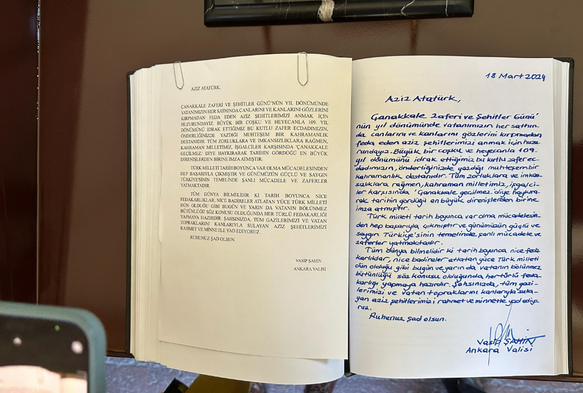 AZİZ ATATÜRK,
ÇANAKKALE ZAFERİ VE ŞEHİTLER GÜNÜ'NÜN YIL DÖNÜMÜNDE
VATANIMIZIN HER SATHINDA CANLARINI VE KANLARINI GÖZLERİNİ
KIRPMADAN FEDA EDEN AZİZ ŞEHİTLERİMİZİ ANMAK İÇİN
HUZURUNDAYIZ. BÜYÜK BİR COŞKU VE HEYECANLA 109. YIL
DÖNÜMÜNÜ İDRAK ETTİĞİMİZ BU KUTLU ZAFER ECDADIMIZIN,
ÖNDERLİĞİNİZDE YAZDIĞI MUHTEŞEM BİR KAHRAMANLIK
DESTANIDIR. TÜM ZORLUKLARA VE İMKANSIZLIKLARA RAĞMEN,
KAHRAMAN MİLLETİMİZ, İŞGALCİLER KARŞISINDA 'ÇANAKKALE
GEÇİLMEZ' DİYE HAYKIRARAK TARİHİN GÖRDÜĞÜ EN BÜYÜK
DİRENİŞLERDEN BİRİNE İMZA ATMIŞTIR.
TÜRK MİLLETİ TARİH BOYUNCA VAR OLMA MÜCADELESİNDEN
HEP BAŞARIYLA ÇIKMIŞTIR VE GÜNÜMÜZÜN GÜÇLÜ VE SAYGIN
TÜRKİYE'SİNİN TEMELİNDE ŞANLI MÜCADELE VE ZAFERLER
YATMAKTADIR.
TÜM DÜNYA BİLMELİDİR Kİ TARİH BOYUNCA NİCE
FEDAKARLIKLAR, NİCE BADİRELER ATLATAN YÜCE TÜRK MİLLETİ
DÜN OLDUĞU GİBİ BUGÜN VE YARIN DA VATANIN BÖLÜNMEZ
BÜTÜNLÜĞÜ SÖZ KONUSU OLDUĞUNDA HER TÜRLÜ FEDAKARLIĞI
YAPMAYA HAZIRDIR. ŞAHSINIZDA, TÜM GAZİLERİMİZİ VE VATAN
TOPRAKLARINI KANLARIYLA SULAYAN AZİZ ŞEHİTLERİMİZİ
RAHMET VE MİNNETLE YAD EDİYORUZ.
RUHUNUZ ŞAD OLSUN.
VASİP ŞAHİN
ANKARA VALİSİ
18 Mart 2024
Aziz Atatürk,
Çanakkale Zaferi ve Şehitler Günü'
nün yıl dönümünde vatanımızın her sathın
da canlarını ve kanlarını gözlerini kırpmadan
feda eden aziz şehitlerimizi anmak için huzu
rundayız. Büyük bir coşku ve heyecanla 109.
yıl dönümünü idrak ettiğimiz bu kutlu zafer ec
dadımızın, önderliğinizde yazdığı muhteşem bir
kahramanlık destanıdır. Tüm zorluklara ve imkan
sızlıklara rağmen, kahraman milletimiz, işgalci
ler karşısında 'Çanakkale geçilmez' diye haykıra
rak tarihin gördüğü en büyük direnişlerden biri
ne imza atmıştır.
Türk milleti tarih boyunca var olma mücadelesin
den hep başarıyla çıkmıştır ve günümüzün güçlü ve
saygın Türkiye'sinin temelinde şanlı mücadele ve
zaferler yatmaktadır.
Tüm dünya bilmelidir ki tarih boyunca nice feda
karlıklar, nice badireler atlatan yüce Türk milleti
dün olduğu gibi bugün ve yarın da vatanın bölünmez
bütünlüğü söz konusu olduğunda her türlü feda
karlığı yapmaya hazırdır. Şahsınızda, tüm gazi
lerimizi ve vatan topraklarını kanlarıyla sula
yan aziz şehitlerimizi rahmet ve minnetle yad ediyo
ruz.
Ruhunuz şad olsun.
Vasip ŞAHİN
Ankara Valisi